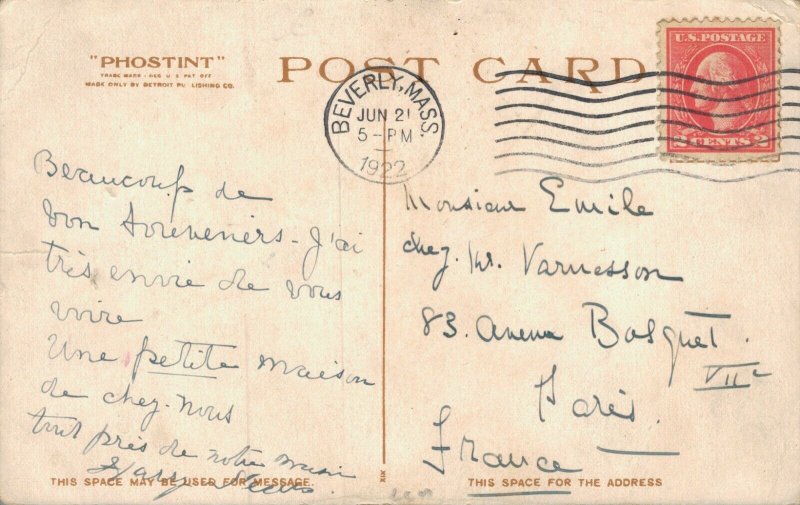 "PHOSTINT"
TRADE MARK - REG U S PAT OFF
MADE ONLY BY DETROIT PUBLISHING CO.
POST CARD
U.S. POSTAGE
2 CENTS 2
BEVERLY, MASS.
JUN 21
5 - PM
1922
Beaucoup de
bon souveniers - J'ai
très envie de vous
voire
Une petite maison
de chez-nous
tout près de notre maison
Monsieur Emile
chez. Mr. Varnesson
83. Avenue Bosquet.
VIIe
Paris.
France
THIS SPACE MAY BE USED FOR MESSAGE.
XIX
THIS SPACE FOR THE ADDRESS